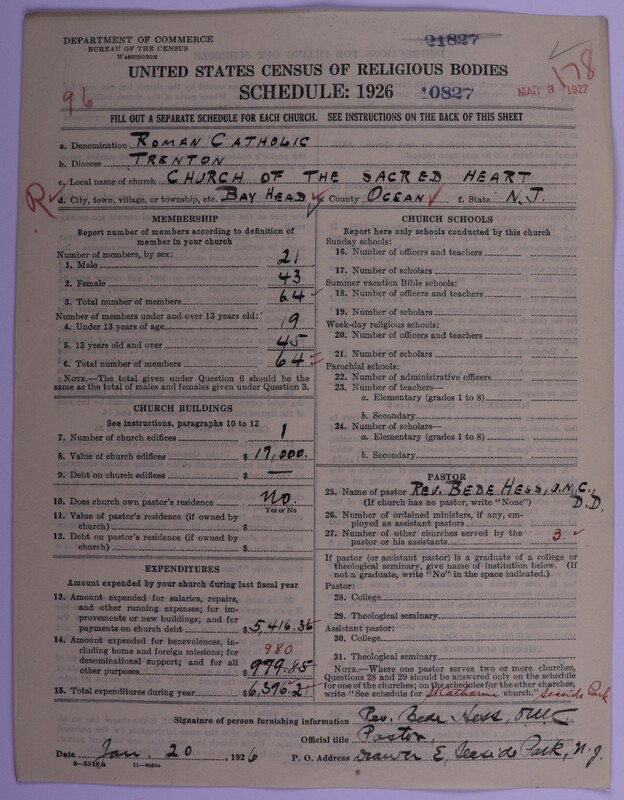 DEPARTMENT OF COMMERCE
BUREAU OF THE CENSUS
WASHINGTON
21827
178
UNITED STATES CENSUS OF RELIGIOUS BODIES
96
SCHEDULE: 1926
10827
MAR 3 1927
FILL OUT A SEPARATE SCHEDULE FOR EACH CHURCH. SEE INSTRUCTIONS ON THE BACK OF THIS SHEET
a. Denomination ROMAN CATHOLIC
b. Diocese TRENTON
c. Local name of church CHURCH OF THE SACRED HEART
R d. City, town, village, or township, etc. BAY HEAD, e. County OCEAN f. State N.J.
MEMBERSHIP
Report number of members according to definition of
member in your church
Number of members, by sex:
1. Male 21
2. Female 43
3. Total number of members 64
Number of members under and over 13 years old:
4. Under 13 years of age 19
5. 13 years old and over 45
6. Total number of members 64
NOTE.—The total given under Question 6 should be
same as the total of males and females given under Question 3.
CHURCH BUILDINGS
See instructions, paragraphs 10 to 12
7. Number of church edifices 1
8. Value of church edifices $17,000.
9. Debt on church edifices $ —
10. Does church own pastor's residence No.
Yes or No
11. Value of pastor's residence (if owned by
church) $
12. Debt on pastor's residence (if owned by
church) $
EXPENDITURES
Amount expended by your church during last fiscal year
13. Amount expended for salaries, repairs,
and other running expenses; for im-
provements or new buildings; and for
payments on church debt $5,416.36
14. Amount expended for benevolences, in-
cluding home and foreign missions; for
denominational support; and for all
other purposes 980
$979.85
15. Total expenditures during year $6,396.21
CHURCH SCHOOLS
Report here only schools conducted by this church
Sunday schools:
16. Number of officers and teachers
17. Number of scholars
Summer vacation Bible schools:
18. Number of officers and teachers
19. Number of scholars
Week-day religious schools:
20. Number of officers and teachers
21. Number of scholars
Parochial schools:
22. Number of administrative officers
23. Number of teachers—
a. Elementary (grades 1 to 8)
b. Secondary
24. Number of scholars—
a. Elementary (grades 1 to 8)
b. Secondary
PASTOR
25. Name of pastor REV. BEDE HESS, O.M.C., D.D.
(If church has no pastor, write "None")
26. Number of ordained ministers, if any, em-
ployed as assistant pastors
27. Number of other churches served by the
pastor or his assistants 3
If pastor (or assistant pastor) is a graduate of a college or
theological seminary, give name of institution below. (If
not a graduate, write "No" in the space indicated.)
Pastor:
28. College
29. Theological seminary
Assistant pastor:
30. College
31. Theological seminary
NOTE.—Where one pastor serves two or more churches,
Questions 28 and 29 should be answered only on the schedule
for one of the churches; on the schedules for the other churches,
write "See schedule for church." Seaside Park
Signature of person furnishing information Rev. Bede Hess, OMC
Official title Pastor,
Date Jan. 20, 1926
P. O. Address Drawer E, Seaside Park, N.J.